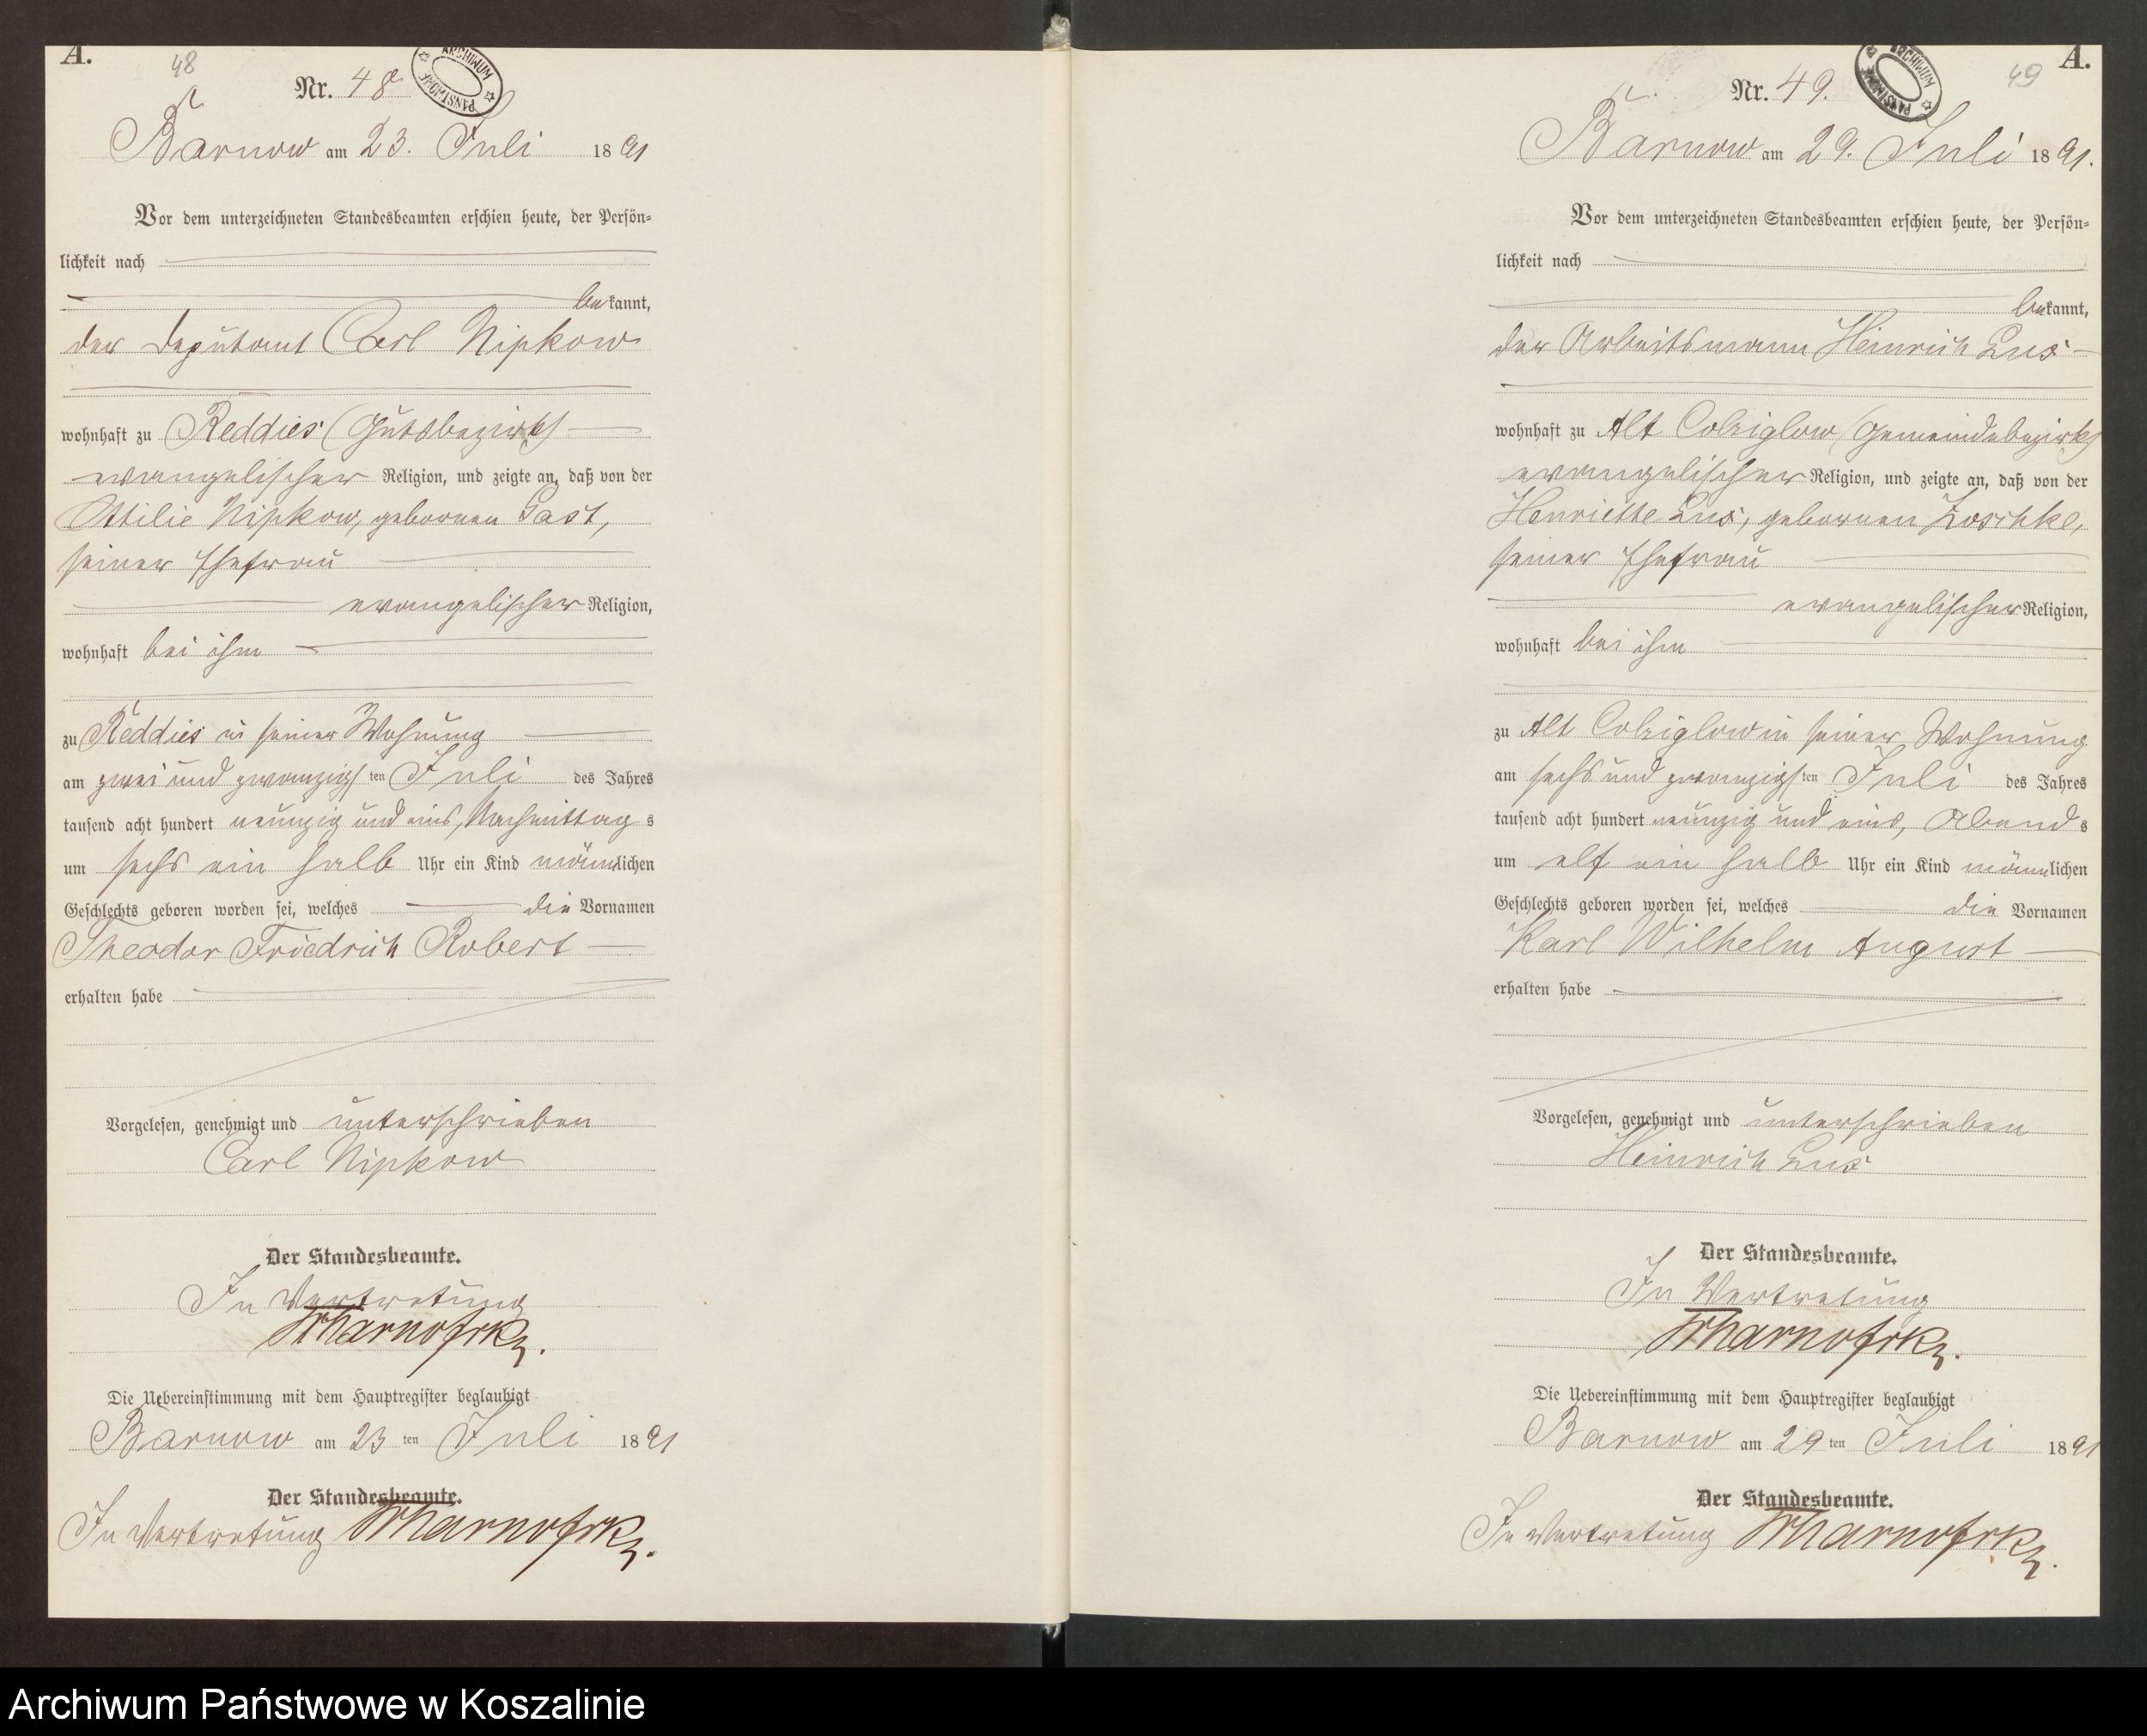 A.
48
Nr. 48
ARCHIWUM PAŃSTWOWE
Barnow am 23. Juli 1891
Vor dem unterzeichneten Standesbeamten erschien heute, der Persön-
lichkeit nach
bekannt,
der Deputant Carl Nipkow
wohnhaft zu Reddies (Gutsbezirk)
evangelischer Religion, und zeigte an, daß von der
Ottilie Nipkow, geborenen Gast,
seiner Ehefrau
evangelischer Religion,
wohnhaft bei ihm
zu Reddies in seiner Wohnung
am zwei und zwanzigsten Juli des Jahres
tausend acht hundert neunzig und eins, Nachmittags
um sechs ein halb Uhr ein Kind männlichen
Geschlechts geboren worden sei, welches die Vornamen
Theodor Friedrich Robert
erhalten habe
Vorgelesen, genehmigt und unterschrieben
Carl Nipkow
Der Standesbeamte.
In Vertretung
Die Uebereinstimmung mit dem Hauptregister beglaubigt
Barnow am 23ten Juli 1891
Der Standesbeamte.
In Vertretung
A.
49
Nr. 49.
ARCHIWUM PAŃSTWOWE
Barnow am 29. Juli 1891.
Vor dem unterzeichneten Standesbeamten erschien heute, der Persön-
lichkeit nach
bekannt,
der Arbeitsmann Heinrich Lux
wohnhaft zu Alt Colziglow (Gemeindebezirk)
evangelischer Religion, und zeigte an, daß von der
Henriette Lux, geborenen Zoschke,
seiner Ehefrau
evangelischer Religion,
wohnhaft bei ihm
zu Alt Colziglow in seiner Wohnung
am sechs und zwanzigsten Juli des Jahres
tausend acht hundert neunzig und eins, Abends
um elf ein halb Uhr ein Kind männlichen
Geschlechts geboren worden sei, welches die Vornamen
Karl Wilhelm August
erhalten habe
Vorgelesen, genehmigt und unterschrieben
Heinrich Lux
Der Standesbeamte.
In Vertretung
Die Uebereinstimmung mit dem Hauptregister beglaubigt
Barnow am 29ten Juli 1891
Der Standesbeamte.
In Vertretung
Archiwum Państwowe w Koszalinie